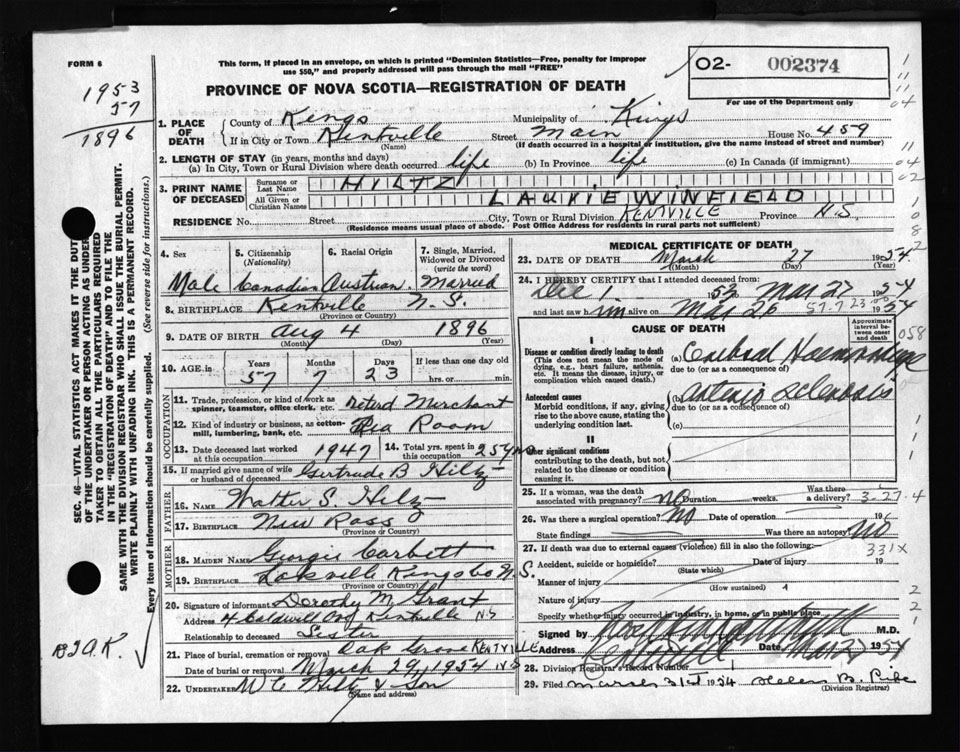 FORM 6
This form, if placed in an envelope, on which is printed "Dominion Statistics—Free, penalty for improper
use $50," and properly addressed will pass through the mail "FREE"
O2- 002374
For use of the Department only
PROVINCE OF NOVA SCOTIA—REGISTRATION OF DEATH
1953
57
1896
1. PLACE OF DEATH
County of Kings Municipality of Kings
If in City or Town Kentville Street Main House No. 459
(Name) (If death occurred in a hospital or institution, give the name instead of street and number)
2. LENGTH OF STAY (in years, months and days)
(a) In City, Town or Rural Division where death occurred life (b) In Province life (c) In Canada (if immigrant)
3. PRINT NAME OF DECEASED
Surname or Last Name HILTZ
All Given or Christian Names LAURIE WINFIELD
RESIDENCE No. Street City, Town or Rural Division KENTVILLE Province N.S.
(Residence means usual place of abode. Post Office Address for residents in rural parts not sufficient)
4. Sex
Male
5. Citizenship (Nationality)
Canadian
6. Racial Origin
Austrian
7. Single, Married, Widowed or Divorced (write the word)
Married
8. BIRTHPLACE Kentville N. S.
(Province or Country)
9. DATE OF BIRTH Aug 4 1896
(Month) (Day) (Year)
10. AGE in
Years Months Days If less than one day old
57 7 23 hrs. or min.
OCCUPATION
11. Trade, profession or kind of work as spinner, teamster, office clerk, etc. retired Merchant
12. Kind of industry or business, as cotton-mill, lumbering, bank, etc. Tea Room
13. Date deceased last worked at this occupation 1947
14. Total yrs. spent in this occupation 25 yrs
15. If married give name of wife or husband of deceased Gertrude B. Hiltz
FATHER
16. NAME Walter S. Hiltz
17. BIRTHPLACE New Ross
(Province or Country)
MOTHER
18. MAIDEN NAME Georgie Corbett
19. BIRTHPLACE Kings Co N.S.
(Province or Country)
20. Signature of informant Dorothy M. Grant
Address 4 Caldwell Kentville N.S
Relationship to deceased Sister
21. Place of burial, cremation or removal Oak Grove KENTVILLE
Date of burial or removal March 29, 1954 N.S
22. UNDERTAKER W C Hiltz & Son
(Name and address)
MEDICAL CERTIFICATE OF DEATH
23. DATE OF DEATH March 27 1954.
(Month) (Day) (Year)
24. I HEREBY CERTIFY that I attended deceased from:
Dec 1 1953 Mar 27 1954
and last saw him alive on Mar 26 1954
CAUSE OF DEATH
Approximate interval between onset and death
I
Disease or condition directly leading to death
(This does not mean the mode of dying, e.g., heart failure, asthenia, etc. It means the disease, injury, or complication which caused death.)
(a) Cerebral Haemorrhage
due to (or as a consequence of)
Antecedent causes
Morbid conditions, if any, giving rise to the above cause, stating the underlying condition last.
(b) Arterio Sclerosis
due to (or as a consequence of)
(c)
II
Other significant conditions
contributing to the death, but not related to the disease or condition causing it.
25. If a woman, was the death associated with pregnancy? No Duration weeks. Was there a delivery? 3-27-4
26. Was there a surgical operation? No Date of operation 19
State findings Was there an autopsy? No
27. If death was due to external causes (violence) fill in also the following: 331X
Accident, suicide or homicide? Date of injury 19
(State which)
Manner of injury (How sustained)
Nature of injury
Specify whether injury occurred in industry, in home, or in public place
Signed by M.D.
Address Date 1954
28. Division Registrar's Record Number 1
29. Filed March 31st 1954 Helen B.
(Division Registrar)
SEC. 46—VITAL STATISTICS ACT MAKES IT THE DUTY
OF THE UNDERTAKER OR PERSON ACTING AS UNDER-
TAKER TO OBTAIN ALL THE PARTICULARS REQUIRED
IN THE "REGISTRATION OF DEATH" AND TO FILE THE
SAME WITH THE DIVISION REGISTRAR WHO SHALL ISSUE THE BURIAL PERMIT.
WRITE PLAINLY WITH UNFADING INK. THIS IS A PERMANENT RECORD.
Every item of information should be carefully supplied. (See reverse side for instructions.)